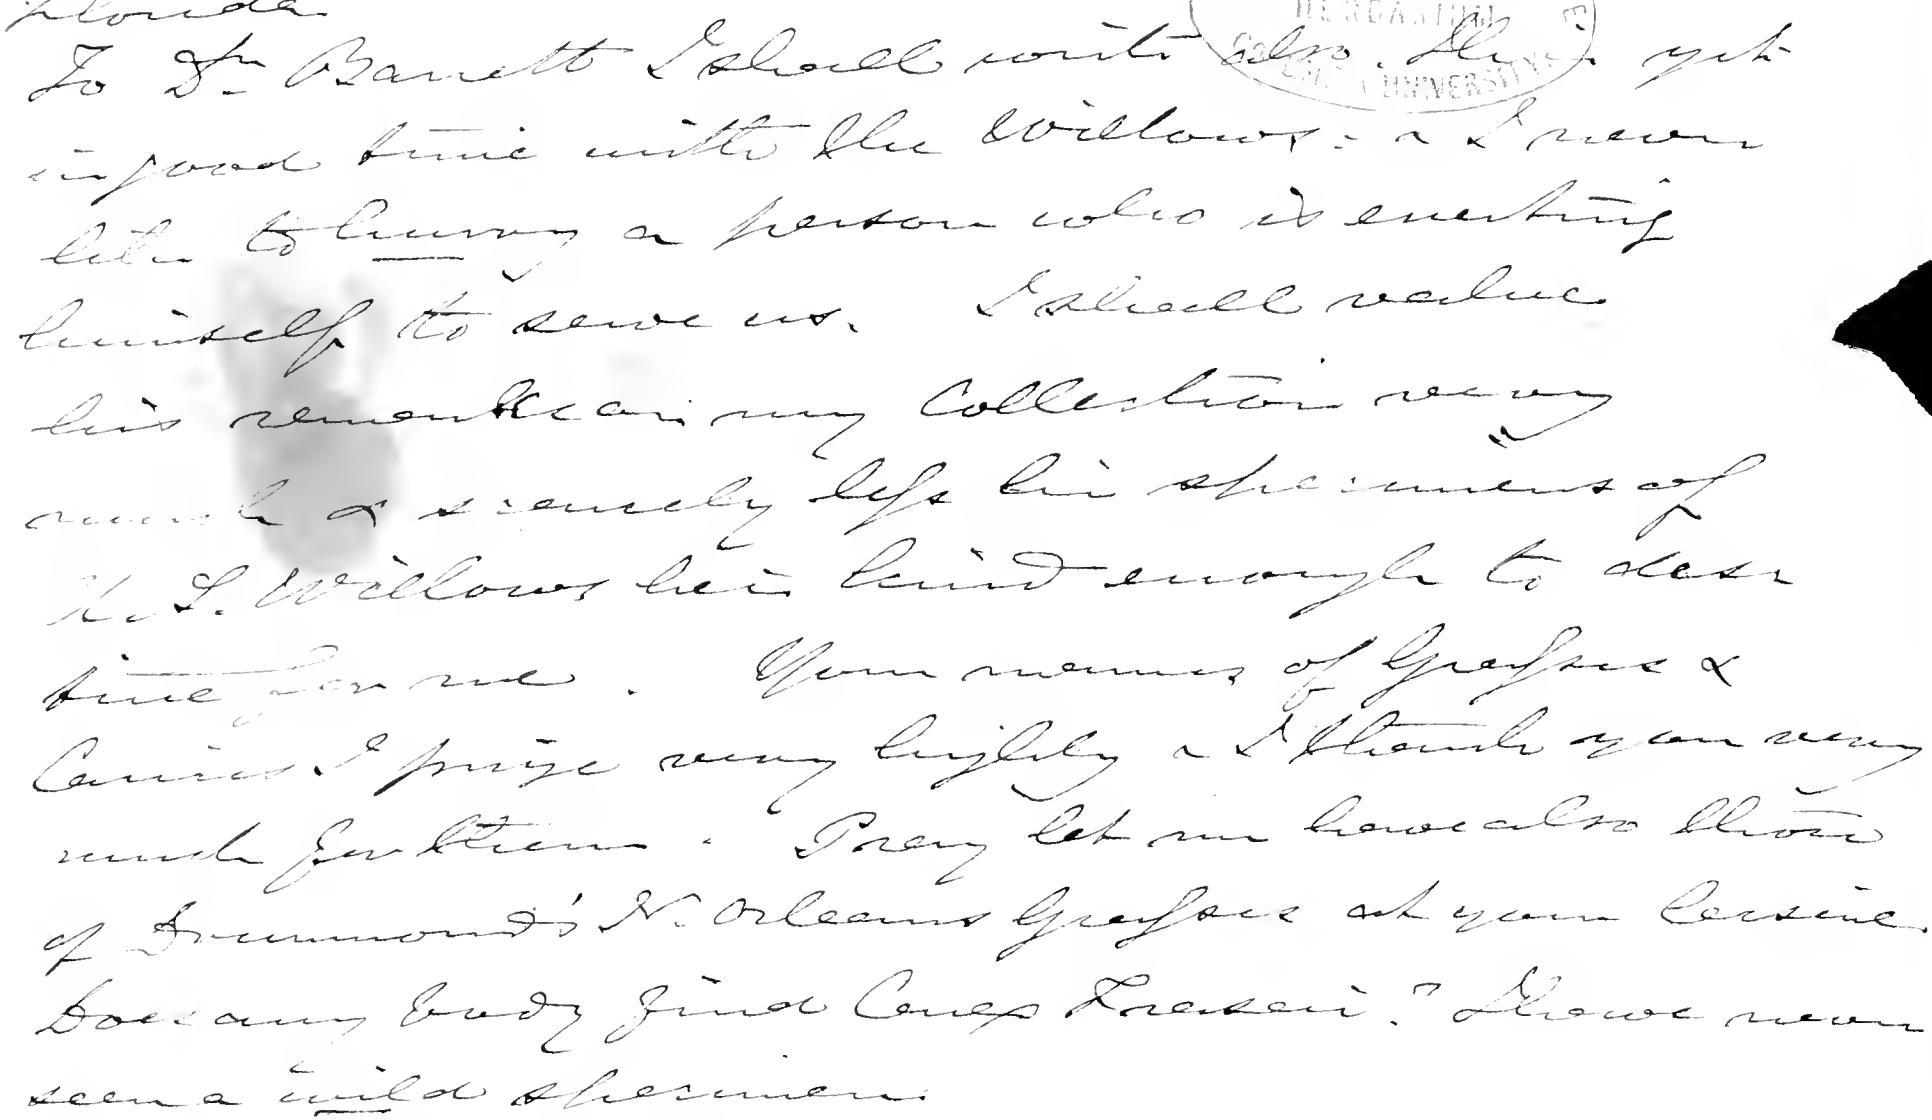 Florida
To Dr. Barratt I shall write also. He is yet
in good time with the Willows: & I never
like to hurry a person who is exerting
himself to serve us. I shall value
his remarks on my Collection very
much & scarcely less his specimens of
U. S. Willows he is kind enough to desi
tine for me. Your names of Grasses &
Carices I prize very highly & I thank you very
much for them. Pray let me have also those
of Drummond's N. Orleans Grasses at your leisure.
Does any body find Carex Fraseri? I have never
seen a wild specimen.
UNIVERSITY